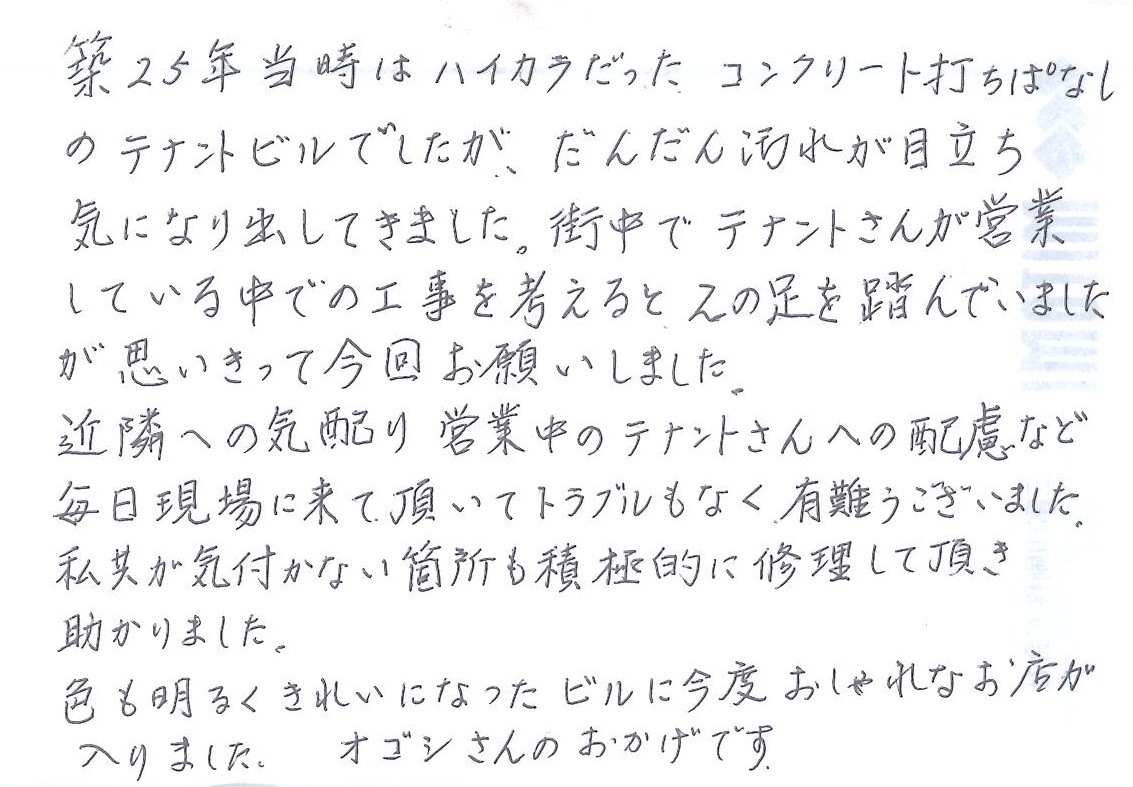 築25年当時はハイカラだった コンクリート打ちぱなし
のテナントビルでしたが、だんだん汚れが目立ち
気になり出してきました。街中でテナントさんが営業
している中での工事を考えるとスの足を踏んでいました
が思いきって今回お願いしました。
近隣への気配り 営業中のテナントさんへの配慮など
毎日現場に来て頂いてトラブルもなく有難うございました。
私共が気付かない箇所も積極的に修理して頂き
助かりました。
色も明るくきれいになったビルに今度おしゃれなお店が
入りました。 オゴシさんのおかげです